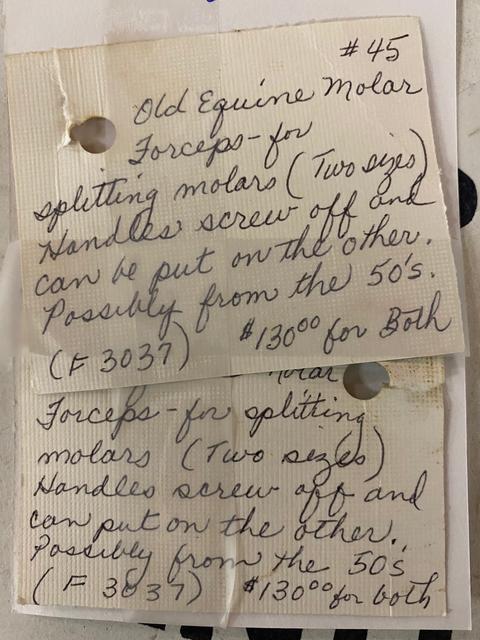 #45
Old Equine Molar
Forceps - for
splitting molars (Two sizes)
Handles screw off and
can be put on the other.
Possibly from the 50's.
(F 3037) $130.00 for Both
Molar
Forceps - for splitting
molars (Two sizes)
Handles screw off and
can put on the other.
Possibly from the 50's
(F 3037) $130.00 for both